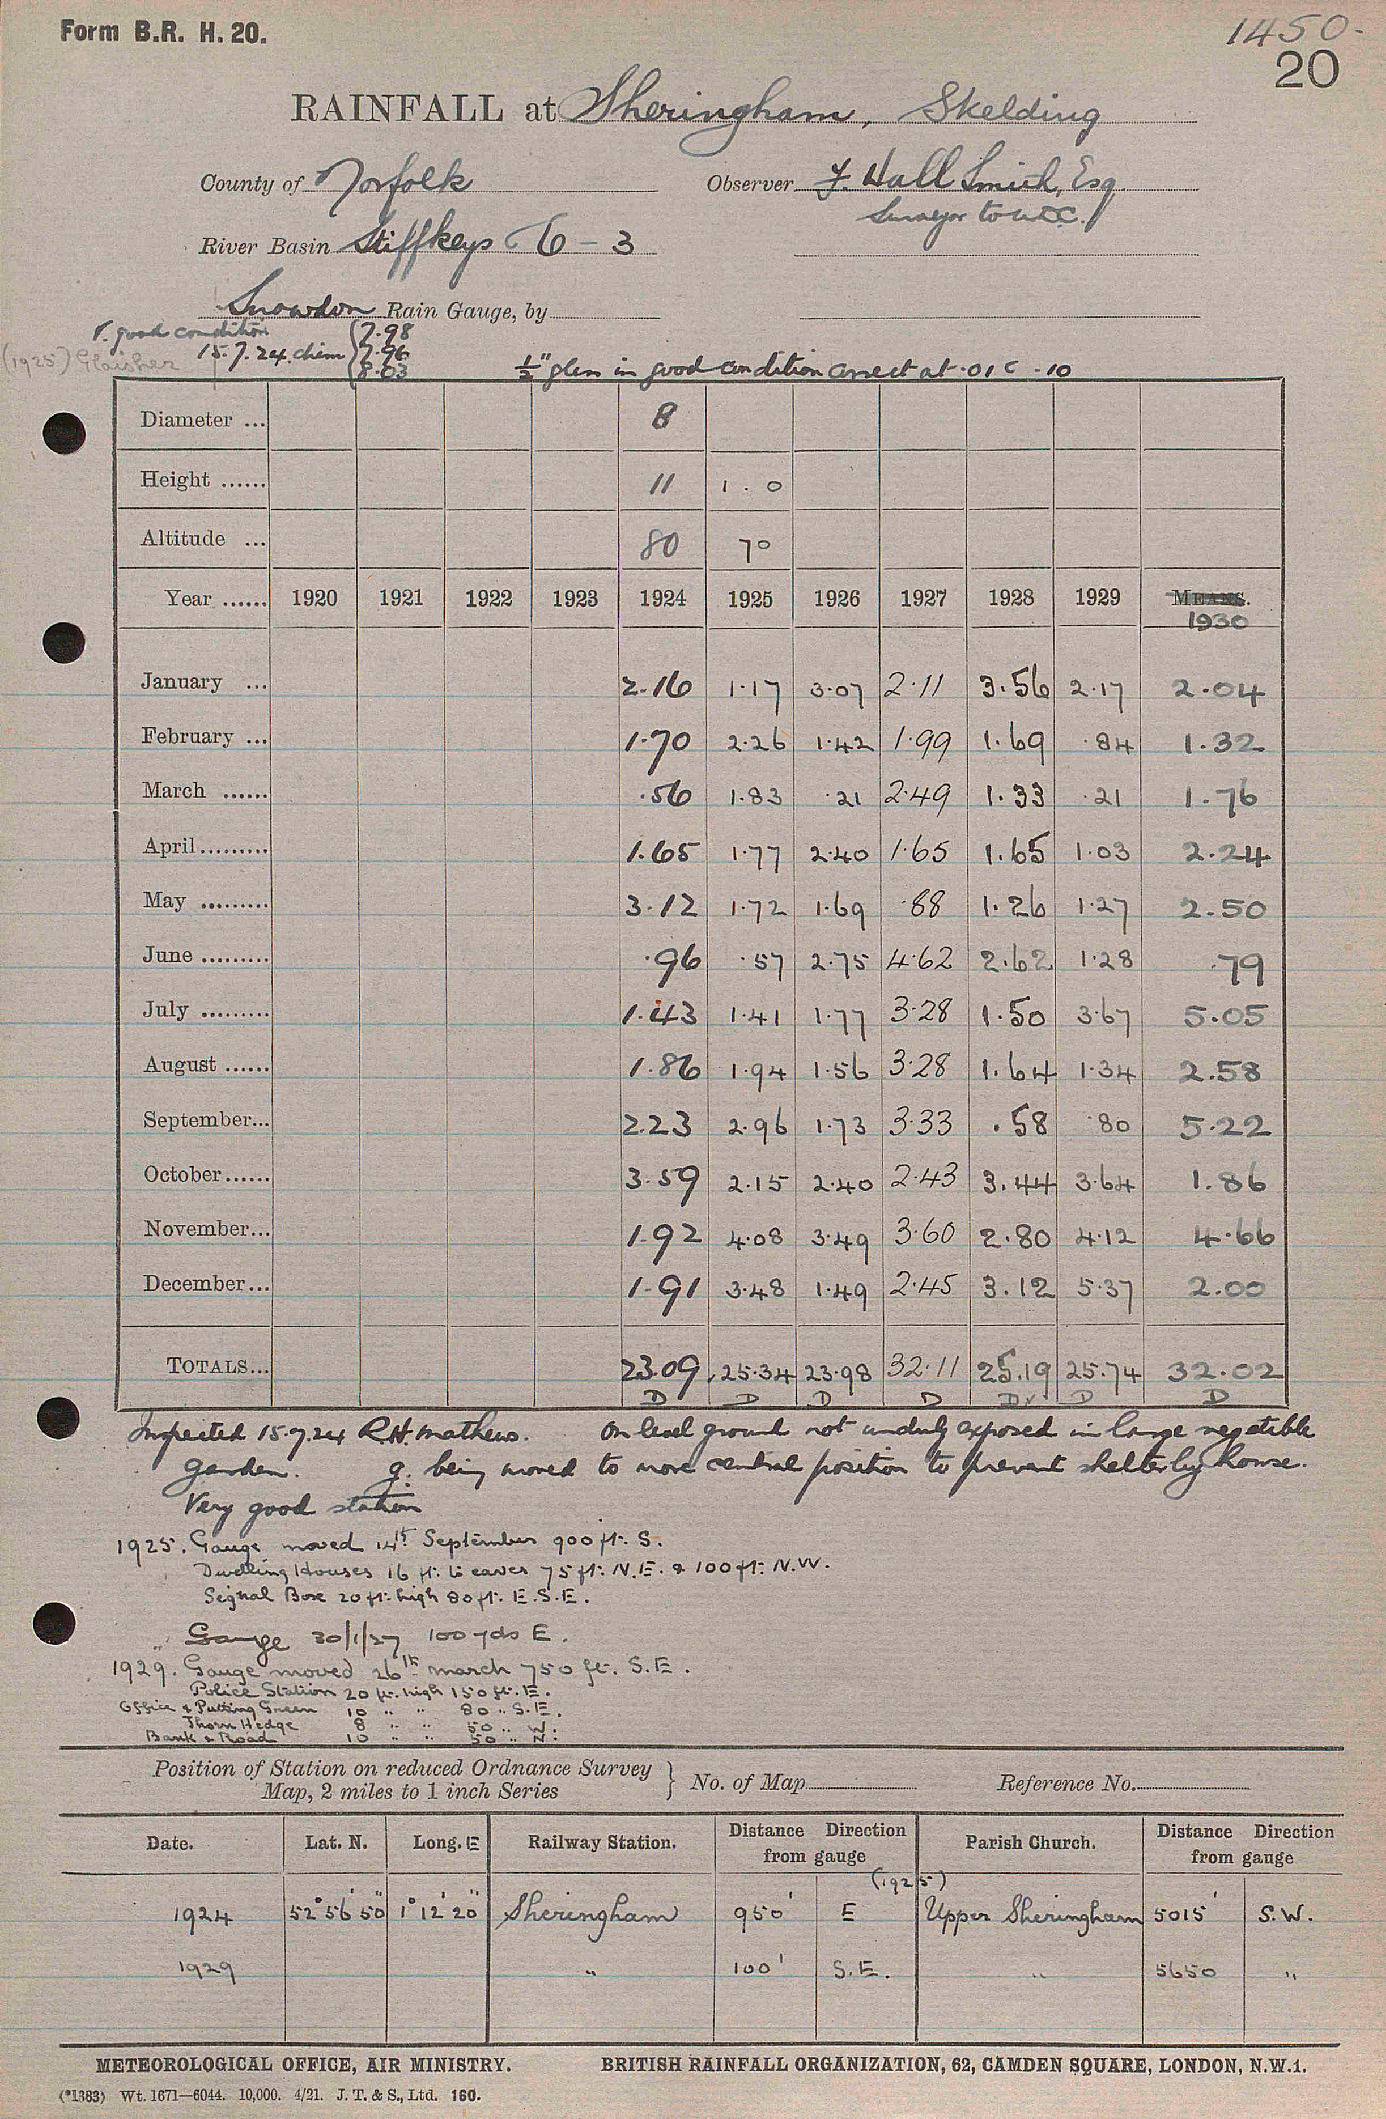 Form B.R. H. 20.
1450.
20
RAINFALL at Sheringham, Skelding
County of Norfolk Observer F. Hall Smith, Esq
Surveyor to U.D.C.
River Basin Stiffkeys 6 - 3
Snowdon Rain Gauge, by
good condition 7.98
(1925) Glaisher 15.7.24. 7.96
8.03
1/2" glass in good condition correct at .01 .10
Diameter ... 8
Height ...... 11 1.0
Altitude ... 80 70
Year ...... 1920 1921 1922 1923 1924 1925 1926 1927 1928 1929 MEANS.
1930
January ... 2.16 1.17 3.07 2.11 3.56 2.17 2.04
February ... 1.70 2.26 1.42 1.99 1.69 .84 1.32
March ...... .56 1.83 .21 2.49 1.33 .21 1.76
April ......... 1.65 1.77 2.40 1.65 1.65 1.03 2.24
May ......... 3.12 1.72 1.69 .88 1.26 1.27 2.50
June ......... .96 .57 2.75 4.62 2.62 1.28 .79
July ......... 1.43 1.41 1.77 3.28 1.50 3.67 5.05
August ...... 1.86 1.94 1.56 3.28 1.64 1.34 2.58
September... 2.23 2.96 1.73 3.33 .58 .80 5.22
October...... 3.59 2.15 2.40 2.43 3.44 3.64 1.86
November... 1.92 4.08 3.49 3.60 2.80 4.12 4.66
December... 1.91 3.48 1.49 2.45 3.12 5.37 2.00
TOTALS... 23.09 25.34 23.98 32.11 25.19 25.74 32.02
D D D D D D D
Inspected 15.7.24 R.H. Mathews. On level ground not unduly exposed in large vegetable
garden. g. being moved to more central position to prevent shelter by house.
Very good station
1925. Gauge moved 14th September 900 ft. S.
Dwelling Houses 16 ft. to eaves 75 ft. N.E. & 100 ft. N.W.
Signal Box 20 ft. high 80 ft. E.S.E.
" Gauge 30/1/27 100 yds E.
1929. Gauge moved 26th march 750 ft. S.E.
Police Station 20 ft. high 150 ft. E.
Office & Putting Green 10 " " 80 " S.E.
Thorn Hedge 8 " " 50 " W.
Bank & Road 10 " " 50 " N.
Position of Station on reduced Ordnance Survey
Map, 2 miles to 1 inch Series } No. of Map Reference No.
Date. Lat. N. Long. E Railway Station. Distance Direction from gauge Parish Church. Distance Direction from gauge
(1925)
1924 52° 56' 50" 1° 12' 20" Sheringham 950' E Upper Sheringham 5015' S.W.
1929 " 100' S.E. " 5650 "
METEOROLOGICAL OFFICE, AIR MINISTRY. BRITISH RAINFALL ORGANIZATION, 62, CAMDEN SQUARE, LONDON, N.W.1.
(*1383) Wt. 1671—6044. 10,000. 4/21. J. T. & S., Ltd. 160.